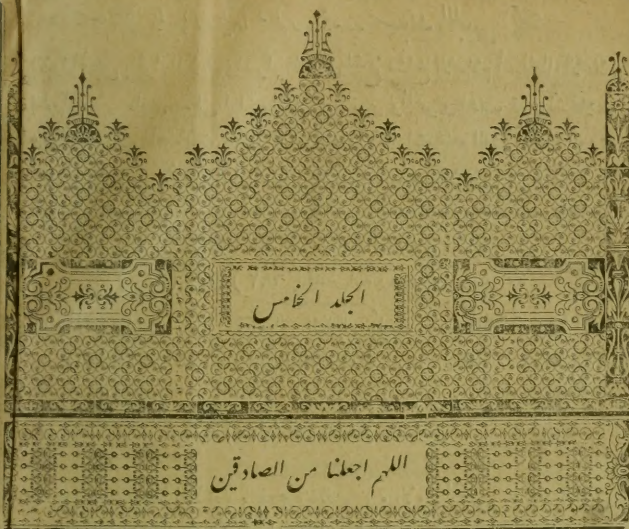 الجلد الخامس
اللهم اجعلنا من الصادقين